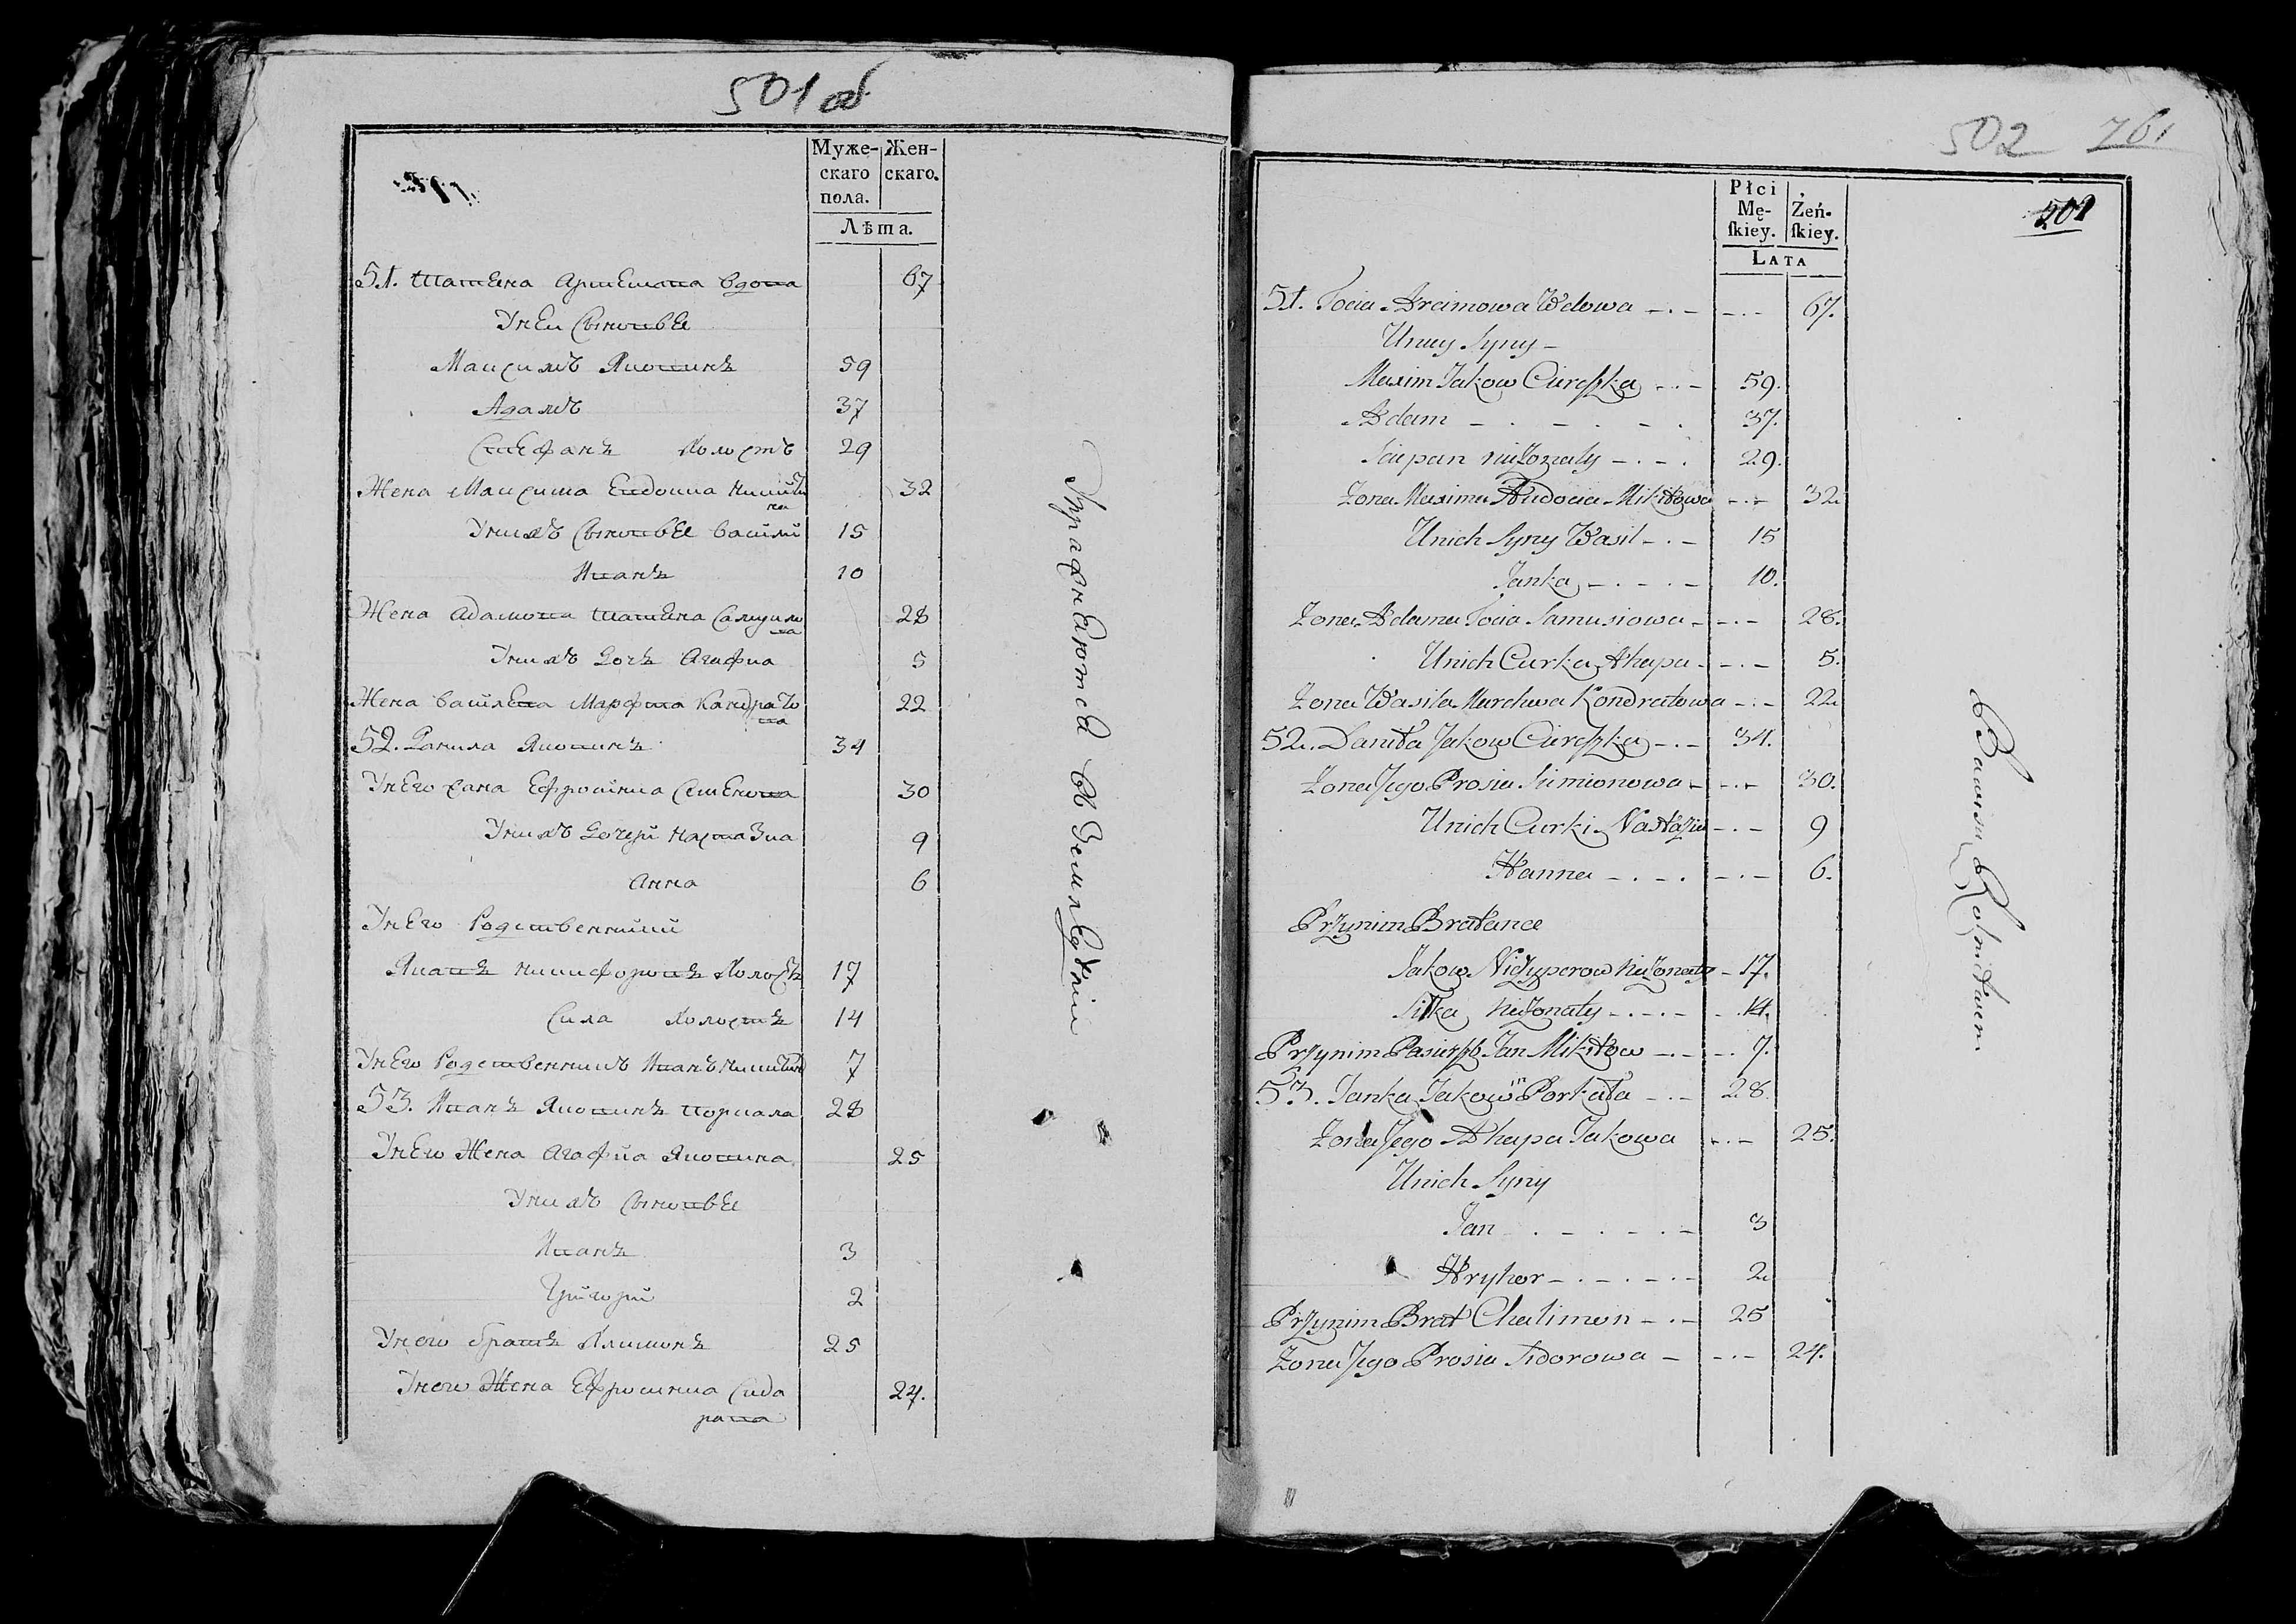 501 об
Муже-
скаго
пола.
Жен-
скаго.
Лѣта.
51. Татьяна Артемова вдова 67
У нея сыновье
Максимъ Яковлевъ 59
Адамъ 37
Стефанъ холостъ 29
Жена Максима Евдокиа Никити
на 32
У нихъ сыновье Василий 15
Иванъ 10
Жена Адамова Татьяна Самуило
ва 28
У нихъ дочь Агафиа 5
Жена Василева Марфва Кондрать
ва 22
52. Данила Яковлевъ 34
У него Ефросиниа Семенова 30
У нихъ дочери Настазиа 9
Анна 6
У него родственники
Яковъ Никифоровъ холостъ 17
Сила холостъ 14
У него родственникъ Иванъ Никитинъ 7
53. Иванъ Яковлевъ Поркала 28
У него жена Агафиа Яковлева 25
У нихъ сыновье
Иванъ 3
Григорий 2
У него братъ Халимонъ 25
У него жена Ефросиниа Сидо
рова 24.
Упражняются въ Земледѣлiи
502 761
501
Płci
Mę-
ſkiey.
Żeń-
ſkiey.
LATA
51. Tocia Arcimowa Wdowa 67.
U niey Syny
Maxim Jakow Cureszka 59.
Adam 37.
Sciepan nieżonaty 29.
Zona Maxima Audocia Mikitowa 32
U nich Syny Wasil 15
Janka 10.
Zona Adama Tocia Samusiowa 28.
U nich Curka Ahapa 5.
Zona Wasila Marchwa Kondratowa 22
52. Daniła Jakow Cureszka 34.
Zona Jego Prosia Simionowa 30.
U nich Curki Nastazia 9
Hanna 6.
Przy nim Bratance
Jakow Niczyperow nieżonaty 17.
Siłka nieżonaty 14.
Przy nim Pasierzb Jan Mikitow 7.
53. Janka Jakow Porkała 28.
Zona Jego Ahapa Jakowa 25.
U nich Syny
Jan 3
Hryhor 2
Przy nim Brat Chalimon 25
Zona Jego Prosia Sidorowa 24.
Bawią się Rolnictwem